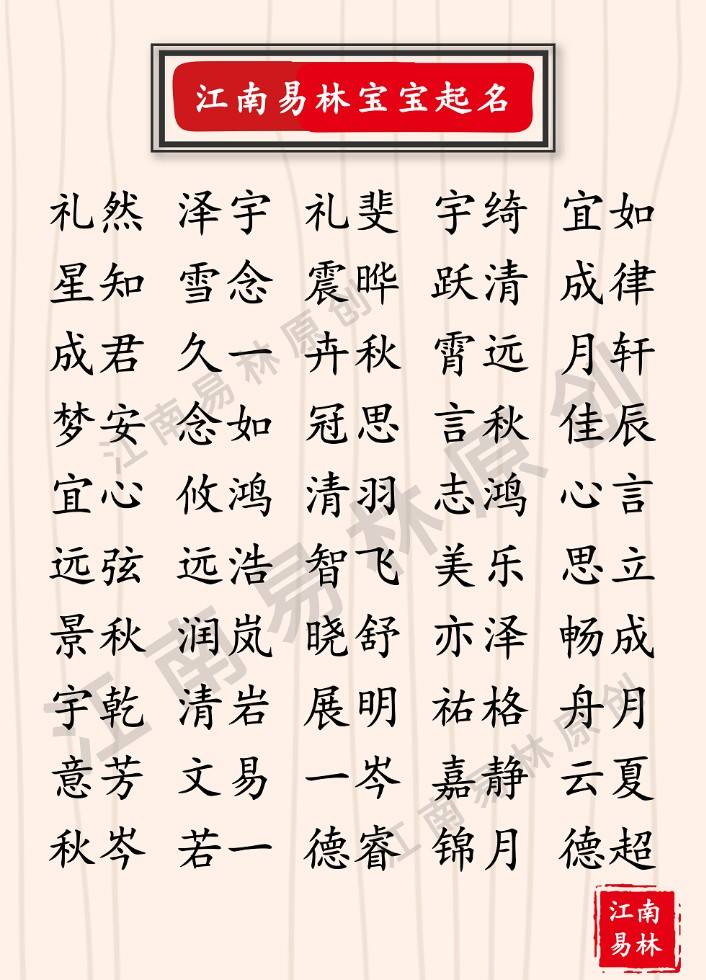 江南易林宝宝起名
礼然 泽宇 礼斐 宇绮 宜如
星知 雪念 震晔 跃清 成律
成君 久一 卉秋 霄远 月轩
梦安 念如 冠思 言秋 佳辰
宜心 攸鸿 清羽 志鸿 心言
远弦 远浩 智飞 美乐 思立
景秋 润岚 晓舒 亦泽 畅成
宇乾 清岩 展明 祐格 舟月
意芳 文易 一岑 嘉静 云夏
秋岑 若一 德睿 锦月 德超
江南易林原创
江南易林原创
江南易林原创
江南
易林